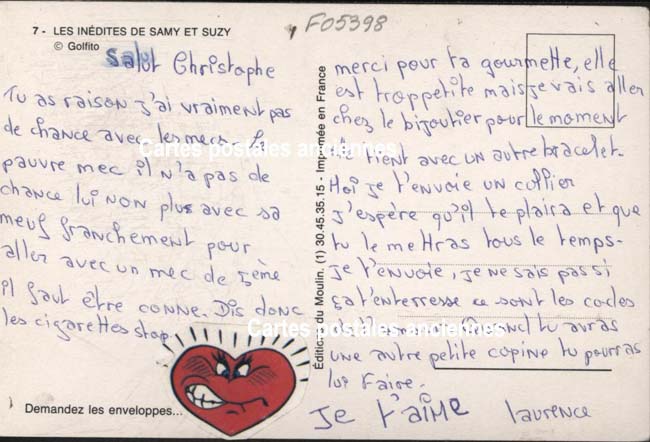 7 - LES INÉDITES DE SAMY ET SUZY
© Golfito
F05398
Salut Christophe
Tu as raison j'ai vraiment pas
de chance avec les mecs. Le
pauvre mec il n'a pas de
chance lui NON plus avec sa
meuf franchement pour
aller avec un mec de 5ème
il faut être conne. Dis donc
les cigarettes stop.
Demandez les enveloppes...
Editions du Moulin. (1) 30.45.35.15 - Imprimée en France
merci pour ta gourmette, elle
est trop petite mais je vais aller
chez le bijoutier pour le moment
tient avec un autre bracelet.
Moi je t'envoie un collier
j'espère qu'il te plaira et que
tu le mettras tous le temps.
je t'envoie, je ne sais pas si
ça t'enterresse ce sont les codes
Quand tu auras
une autre petite copine tu pourras
lui faire.
Je t'aime laurence
Cartes postales anciennes
Cartes postales anciennes